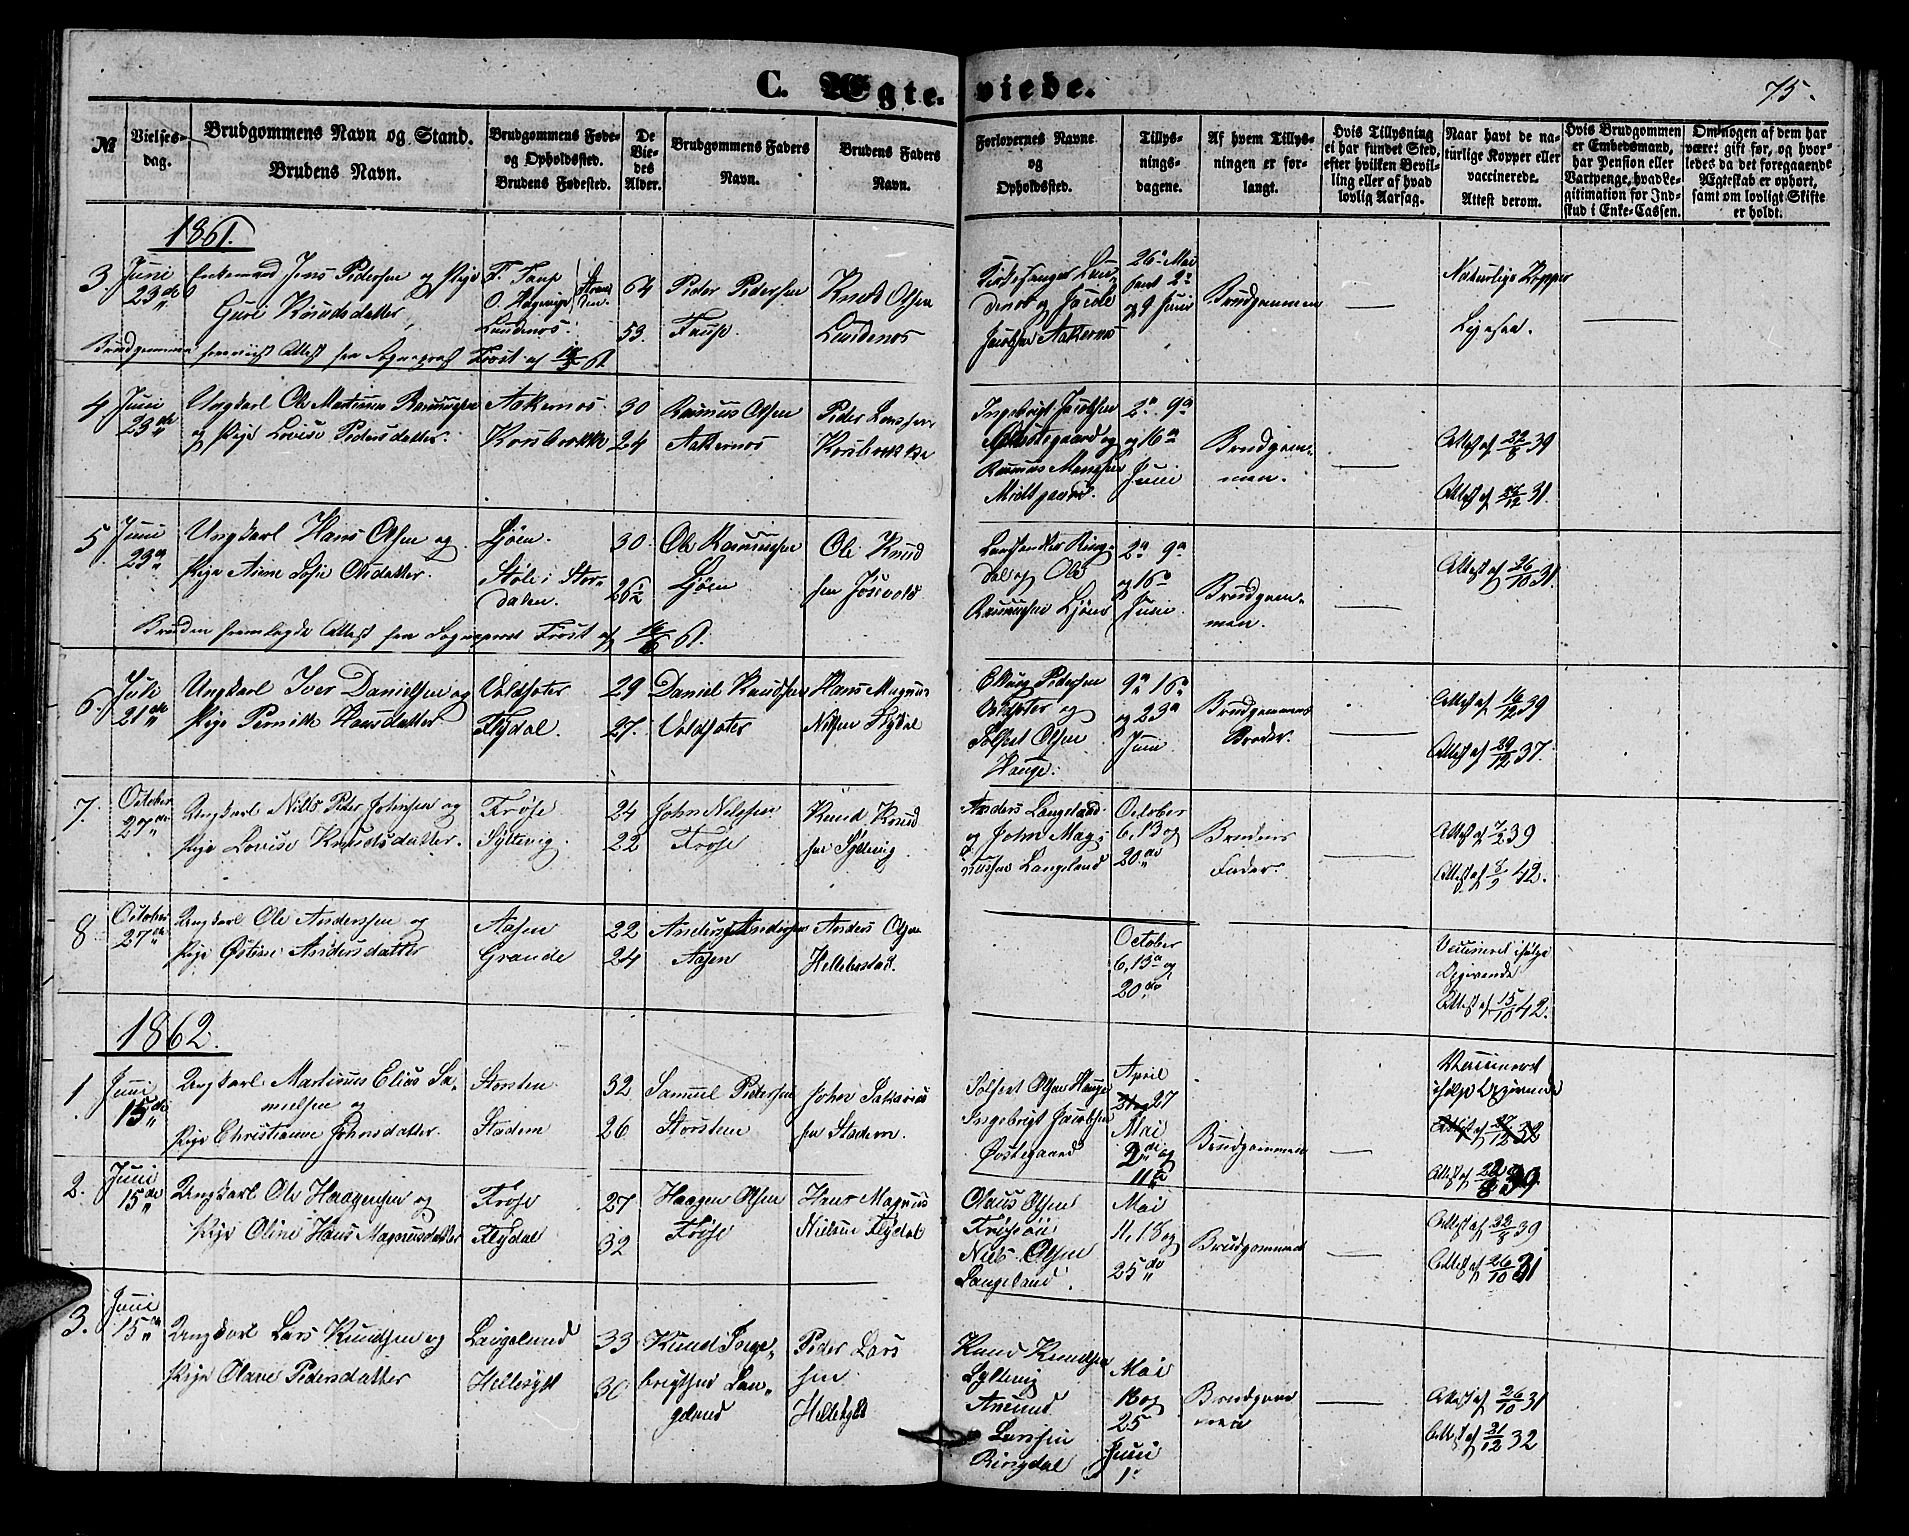 C. Ægte-viede.
75.
№
Vielses-
dag.
Brudgommens Navn og Stand.
Brudens Navn.
Brudgommens Føde-
og Opholdssted.
Brudens Fødested.
De
Vie-
des
Alder.
Brudgommens Faders
Navn.
Brudens Faders
Navn.
Forlovernes Navne
og
Opholdssted.
Tillys-
nings-
dagene.
Af hvem Tillys-
ningen er for-
langt.
Hvis Tillysning
ei har fundet Sted,
efter hvilken Bevil-
ling eller af hvad
lovlig Aarsag.
Naar havt de na-
turlige Kopper eller
vaccinerede.
Attest derom.
Hvis Brudgommen
er Embedsmand,
har Pension eller
Vartpenge, hvad Le-
gitimation for Ind-
skud i Enke-Cassen.
Om nogen af dem har
været gift før, og hvor-
ledes da det foregaaende
Ægteskab er ophørt,
samt om lovligt Skifte
er holdt.
1861.
3. Juni
23de
Enkemand Jens Pedersen og Pige
Guri Knudsdatter
64
53.
Peder Pedersen
Knud Olsen
26de Mai
samt 2de
og 9 Juni
Brudgommen
Naturlige Kopper
Brudgommen fremviist Attest fra Sogneprest Frost af
4 Juni
23de
Ungkarl Ole Martinus Rasmussen
og Pige Lovise Pedersdatter.
Aakernos
Korsbrekke
30
24
Rasmus Olsen
Aakernos
Peder Larssen
Korsbrekke
Ingebrigt Jacobsen
Østregaard og
Rasmus
Midtgaard.
2de 9de
og 16de
Juni
Brudgom-
men.
Attest af 22/8 39
Attest af 31.
5. Juni
23de
Ungkarl Hans Olsen og
Pige Anne Sofie Olsdatter.
Ljøen.
Støle i Stor-
dalen.
30.
26½
Ole Rasmussen
Ljøen
Ole Knud
sen
og Ole
Rasmussen Ljøen
2de 9de
og 16de
Juni.
Brudgom-
men.
Attest af 26/10 31.
Bruden fremlagde Attest fra Sogneprest Frost af
6. Juli
21de
Ungkarl Iver Danielsen og
Pige Pernille Hansdatter
Voldsæter
Flydal
29
27.
Daniel Knudsen
Voldsæter
Hans Magnus
Nilsen Flydal
Elling Pedersen
Voldsæter og
Solfest Olsen
Hauge.
9de 16de
og 23de
Juni
Brudgommens
Broder.
Attest af 16/12 39
Attest af 29/12 37.
7. October
27de
Ungkarl Nils Peder Johnsen og
Pige Lovise Knudsdatter.
Frøse
Syltevig.
24
22
John Nilsen
Frøse
Knud Knud
sen Syltevig
Anders Langeland
og John Mag-
nussen Langeland
October
6, 13 og
20de
Brudens
Fader.
Attest af 39
Attest af 42.
8 October
27de
Ungkarl Ole Anderssen og
Pige Østine Andersdatter
Aasen
Grande
22
24
Anders Anderssen
Aasen
Anders Olsen
Hellebostad.
October
6, 13de og
20de
Vaccineret ifølge
Opgivende
Attest af 15/10 42.
1862.
1. Juni
15de
Ungkarl Martinus Elias Sa-
muelsen og
Pige Christianne Johnsdatter.
Storsten
Stadem
32
26
Samuel Pedersen
Storstein
John
sen Stadem.
Solfest Olsen Hauge
Ingebrigt Jacobsen
Østregaard
April
27
Mai
og
11te
Brudgommen
Vaccineret
ifølge Opgivende
Attest af 39.
2. Juni
15de
Ungkarl Ole Haagensen og
Pige Oline Hans Magnusdatter
Frøse
Flydal
27
32
Haagen Olsen
Frøse
Hans Magnus
Nielsen Flydal
Olaus Olsen
Niels Olsen
Langeland
Mai
11, 18 og
25de
Brudgommen
Attest af 22/8 39
Attest af 26/10 31
3. Juni
15de
Ungkarl Lars Knudsen og
Pige Olave Pedersdatter
Langeland
Hellesylt
33
30
Knud Inge-
brigtsen Lan-
geland
Peder Lars
sen
Hellesylt
Knud Knudsen
Syltevig
Amund
Larssen
Ringdal
Mai
18 og
25
Juni
1.
Brudgom
men
Attest af 26/10 31
Attest af 31/12 32